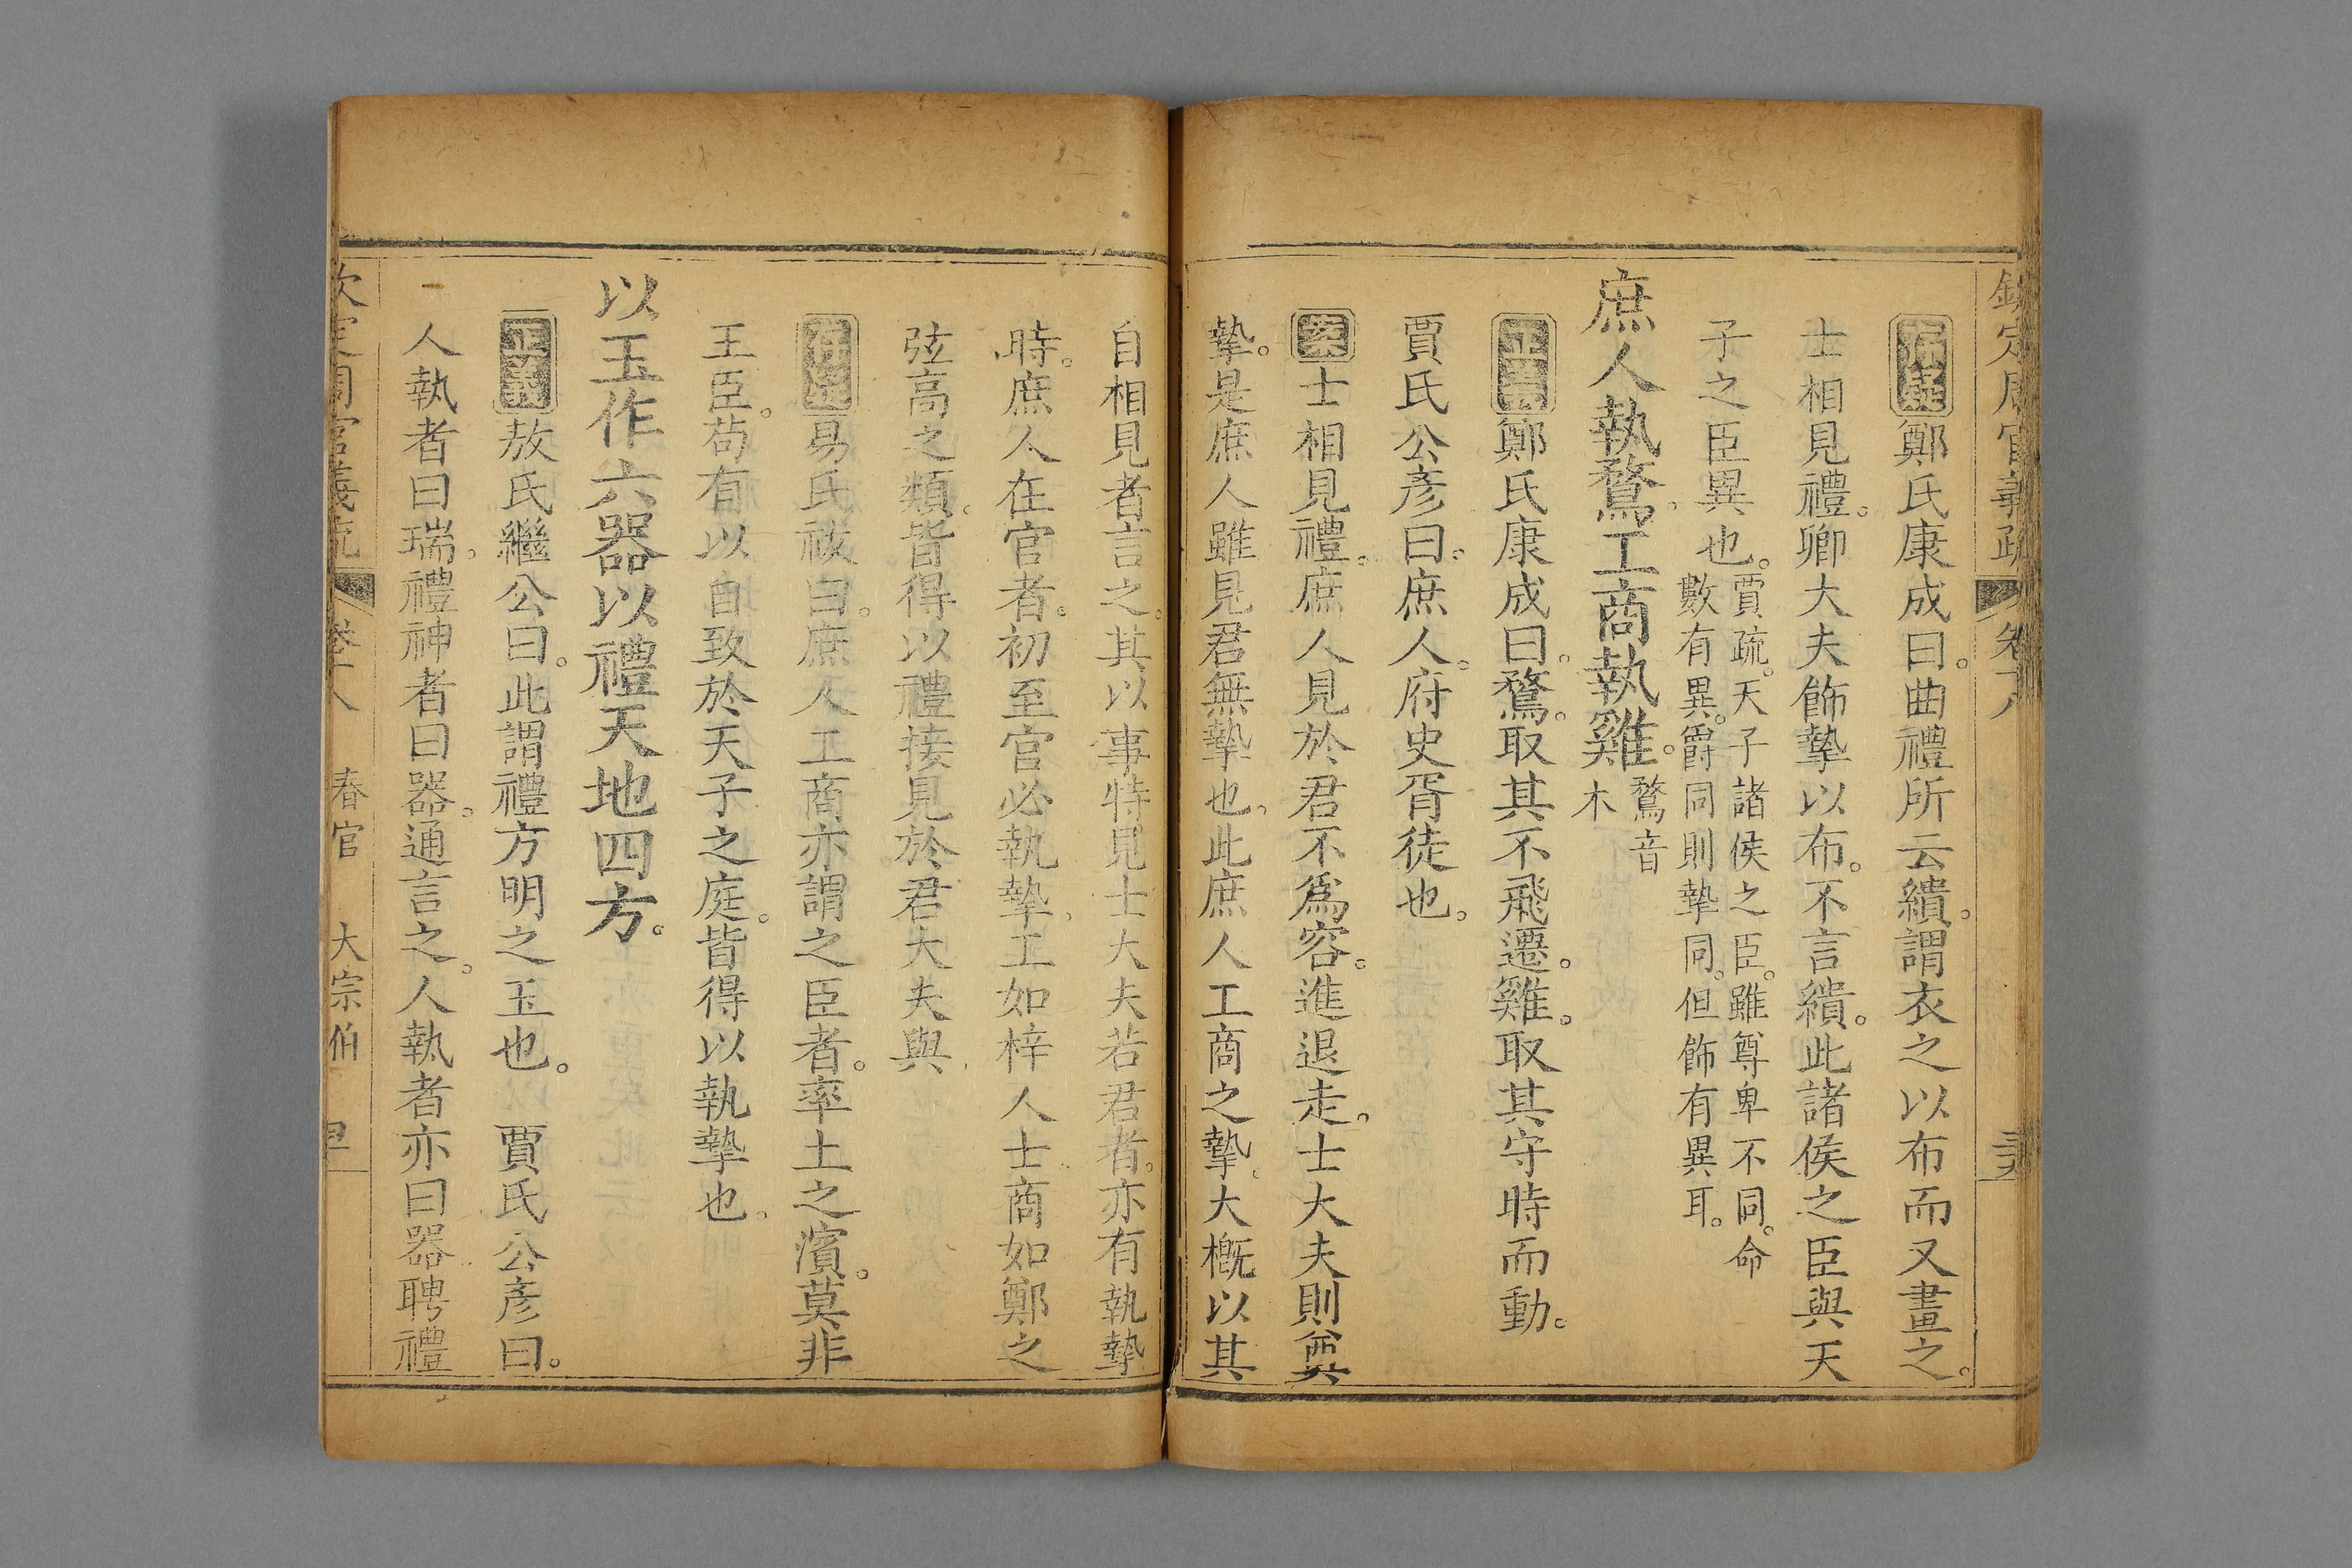 欽定周官義疏 卷十八
存疑鄭氏康成曰。曲禮所云繢。謂衣之以布而又畫之。
士相見禮。卿大夫飾摯以布。不言繢。此諸侯之臣與天
子之臣異也。賈疏。天子諸侯之臣。雖尊卑不同。命
數有異。爵同則摯同。但飾有異耳。
庶人執鶩。工商執雞。鶩音
木
正義鄭氏康成曰。鶩。取其不飛遷。雞。取其守時而動。
賈氏公彥曰。庶人。府史胥徒也。
案士相見禮。庶人見於君不爲容。進退走。士大夫則奠
摯。是庶人雖見君無摯也。此庶人工商之摯。大概以其
自相見者言之。其以事特見士大夫若君者。亦有執摯
時。庶人在官者。初至官必執摯。工如梓人士商如鄭之
弦高之類。皆得以禮接見於君大夫與
存疑易氏祓曰。庶人工商亦謂之臣者。率土之濱。莫非
王臣。苟有以自致於天子之庭。皆得以執摯也。
以玉作六器以禮天地四方。
正義敖氏繼公曰。此謂禮方明之玉也。 賈氏公彥曰。
人執者曰瑞。禮神者曰器。通言之。人執者亦曰器聘禮
欽定周官義疏 卷十八 春官 大宗伯